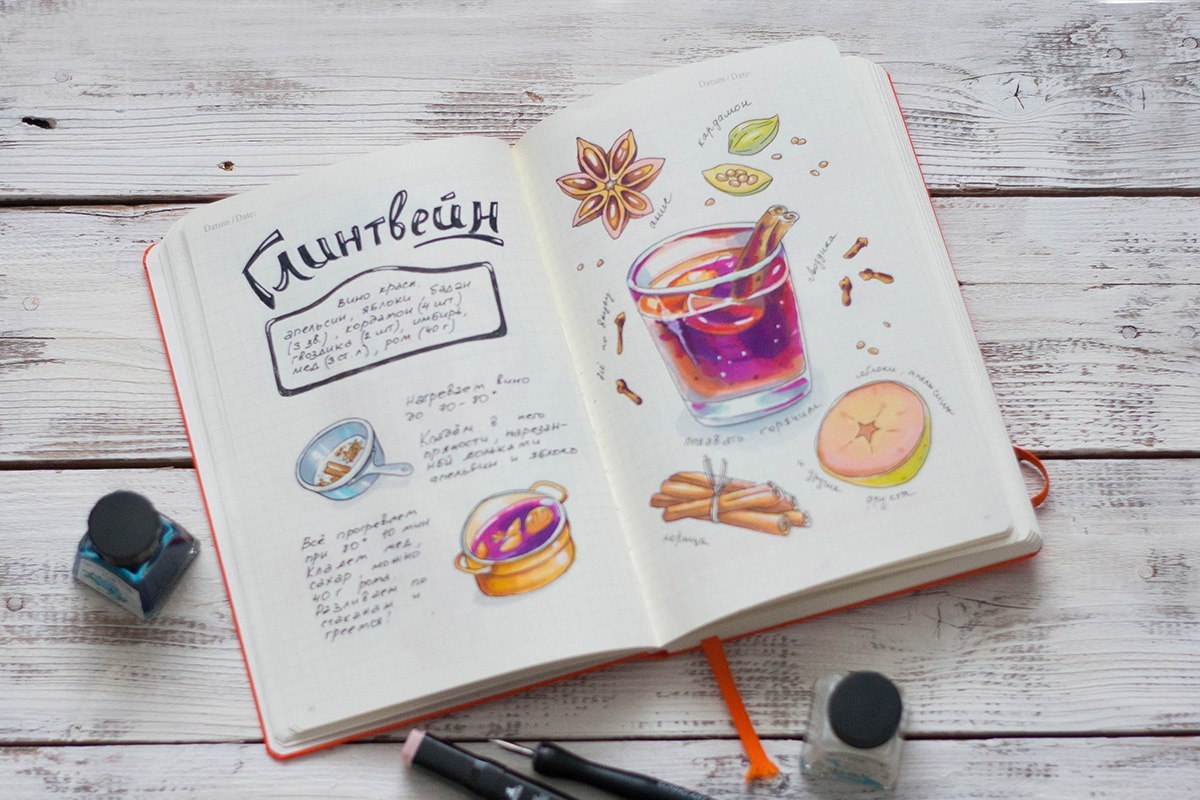 Datum / Date:
Глинтвейн
вино красн.
апельсин, яблоки, бадан
(3 зв.), кордамон (4 шт.)
гвоздика (2 шт), имбирь,
мед (3 ст. л), ром (40 г)
Нагреваем вино
до 70-80°
Кладём в него
пряности, нарезан-
ный дольками
апельсин и яблоко
Всё прогреваем
при 80° 40 мин
Кладем мед,
сахар, можно
40 г рома.
Разливаем по
стаканам и
греется!
Datum / Date:
кардамон
анис
гвоздика
всё по вкусу
яблоки, апельсины
и другие
фрукты
подавать горячим
корица